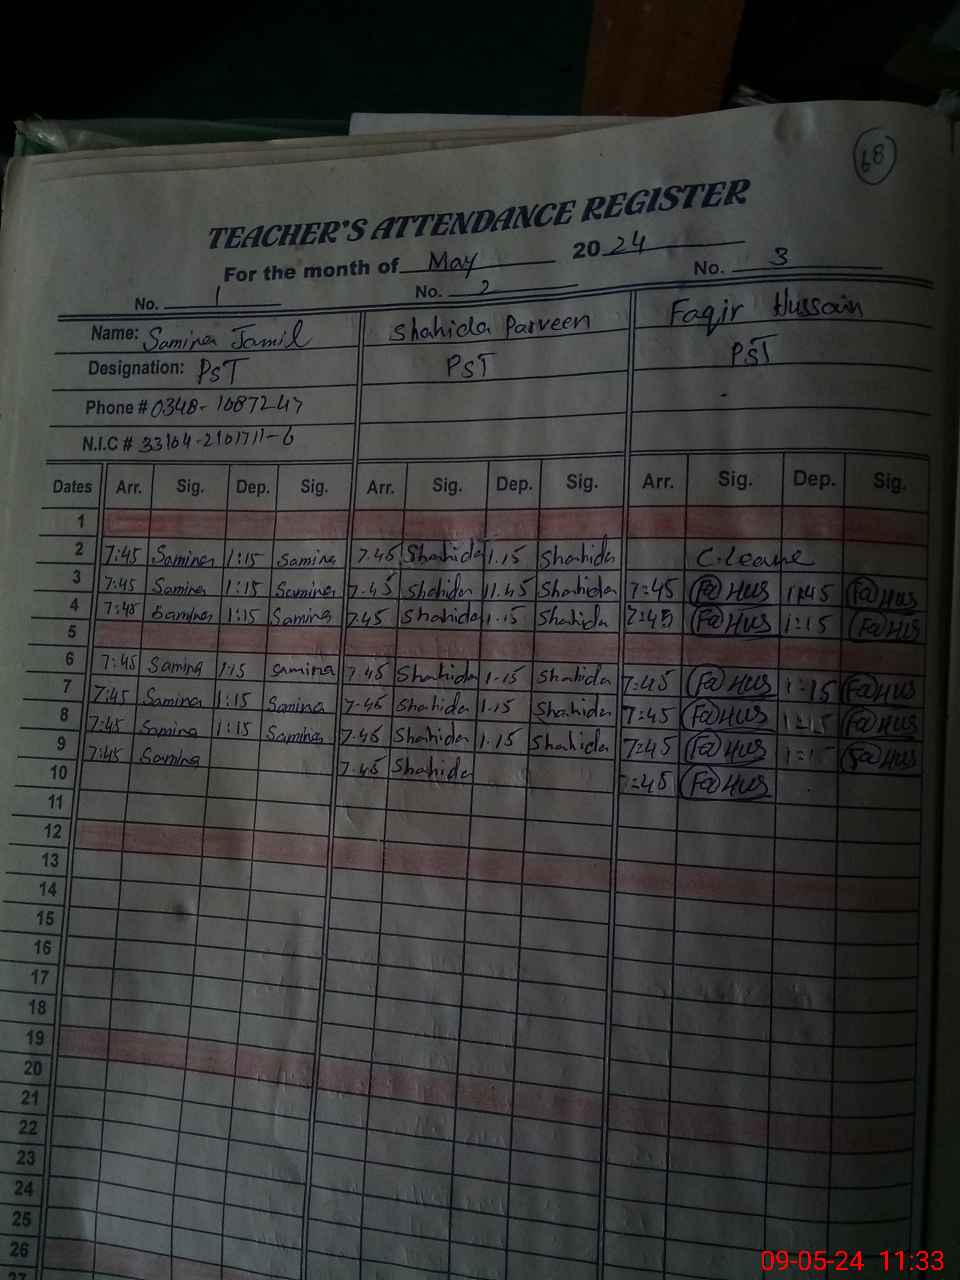 68
TEACHER'S ATTENDANCE REGISTER
For the month of May 2024
No. 1 No. 2 No. 3
Name: Samina Jamil Shahida Parveen Faqir Hussain
Designation: PST PST PST
Phone # 0348-1087247
N.I.C # 33104-2101711-6
Dates Arr. Sig. Dep. Sig. Arr. Sig. Dep. Sig. Arr. Sig. Dep. Sig.
1
2 7:45 Samina 1:15 Samina 7.45 Shahida 1.15 Shahida C.leave
3 7:45 Samina 1:15 Samina 7.45 Shahida 11.45 Shahida 7:45 Fa@ HUS 11:45 Fa@ HUS
4 7:45 Samina 1:15 Samina 7.45 Shahida 1.15 Shahida 7:45 Fa@ HUS 1:15 Fa@ HUS
5
6 7:45 Samina 1:15 Samina 7.45 Shahida 1.15 Shahida 7:45 Fa@ HUS 1:15 Fa@ HUS
7 7:45 Samina 1:15 Samina 7.45 Shahida 1.15 Shahida 7:45 Fa@ HUS 1:15 Fa@ HUS
8 7:45 Samina 1:15 Samina 7.45 Shahida 1.15 Shahida 7:45 Fa@ HUS 1:15 Fa@ HUS
9 7:45 Samina 7.45 Shahida 7:45 Fa@ HUS
10
11
12
13
14
15
16
17
18
19
20
21
22
23
24
25
26
27
09-05-24 11:33